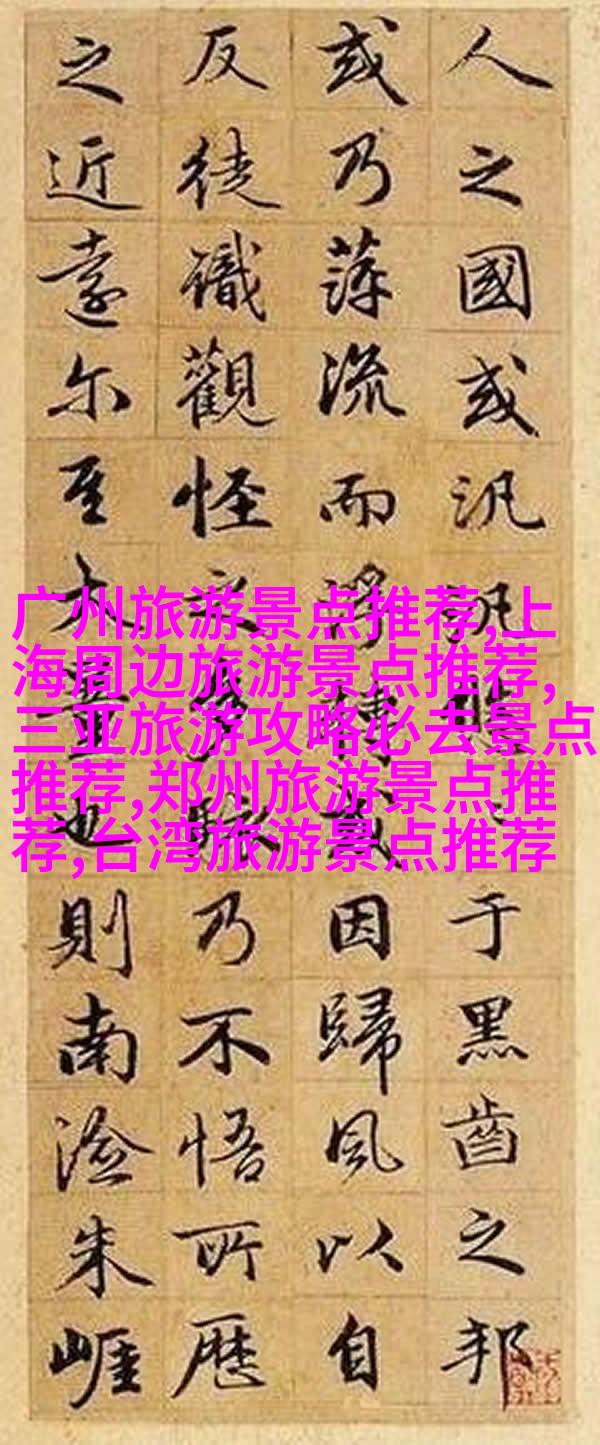 人之國或汎于黑齒之邦
或乃萍流而浮轉或因歸風以自
反徒識觀怪之多駭乃不悟所歷
之近遠尔大量也則南澰朱崕
广州旅游景点推荐,上
海周边旅游景点推荐,
三亚旅游攻略必去景点
推荐,郑州旅游景点推
荐,台湾旅游景点推荐